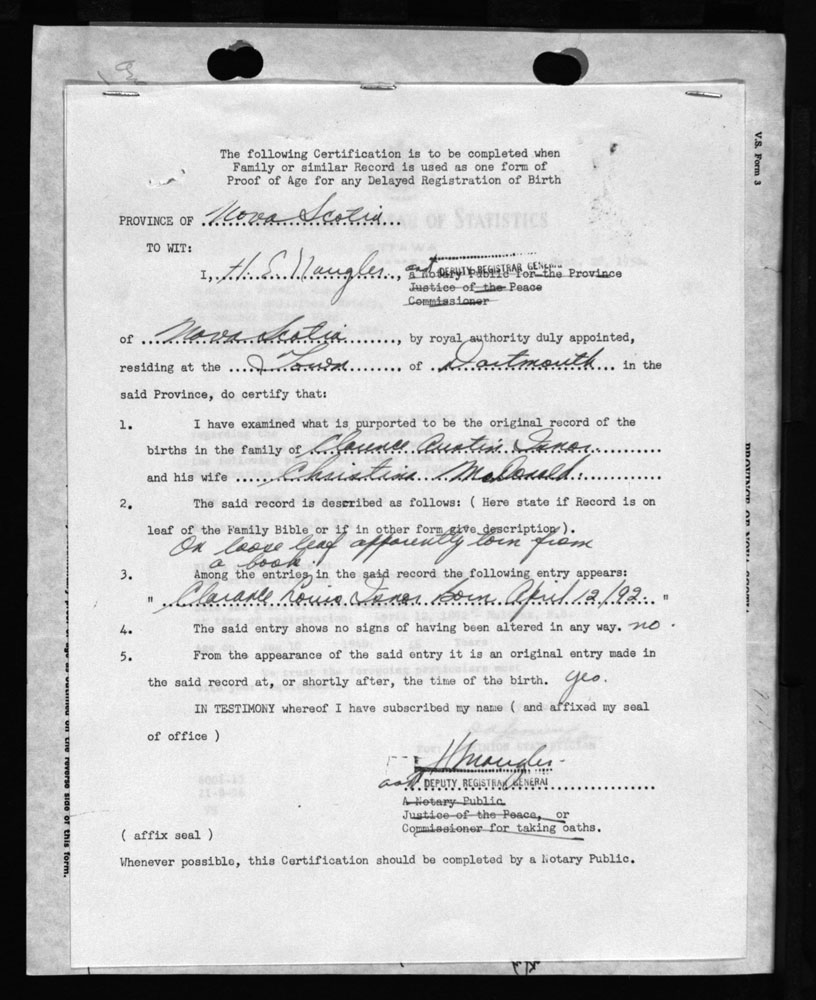 V.S. Form 3
The following Certification is to be completed when
Family or similar Record is used as one form of
Proof of Age for any Delayed Registration of Birth
PROVINCE OF Nova Scotia
OF STATISTICS
TO WIT:
I, H. S. Naugler, asst DEPUTY REGISTRAR GENERAL
a Notary Public for the Province
Justice of the Peace
Commissioner
of Nova Scotia, by royal authority duly appointed,
residing at the Town of Dartmouth in the
said Province, do certify that:
1. I have examined what is purported to be the original record of the
births in the family of Clarence Austin
and his wife Christina McDonald
2. The said record is described as follows: ( Here state if Record is on
leaf of the Family Bible or if in other form give description ).
On loose leaf apparently torn from
a book.
3. Among the entries in the said record the following entry appears:
" Clarance Louis Born April 12/92 "
4. The said entry shows no signs of having been altered in any way. no.
5. From the appearance of the said entry it is an original entry made in
the said record at, or shortly after, the time of the birth. yes.
IN TESTIMONY whereof I have subscribed my name ( and affixed my seal
of office )
H Naugler
asst DEPUTY REGISTRAR GENERAL
A Notary Public
Justice of the Peace, or
Commissioner for taking oaths.
( affix seal )
Whenever possible, this Certification should be completed by a Notary Public.
on the reverse side of this form.